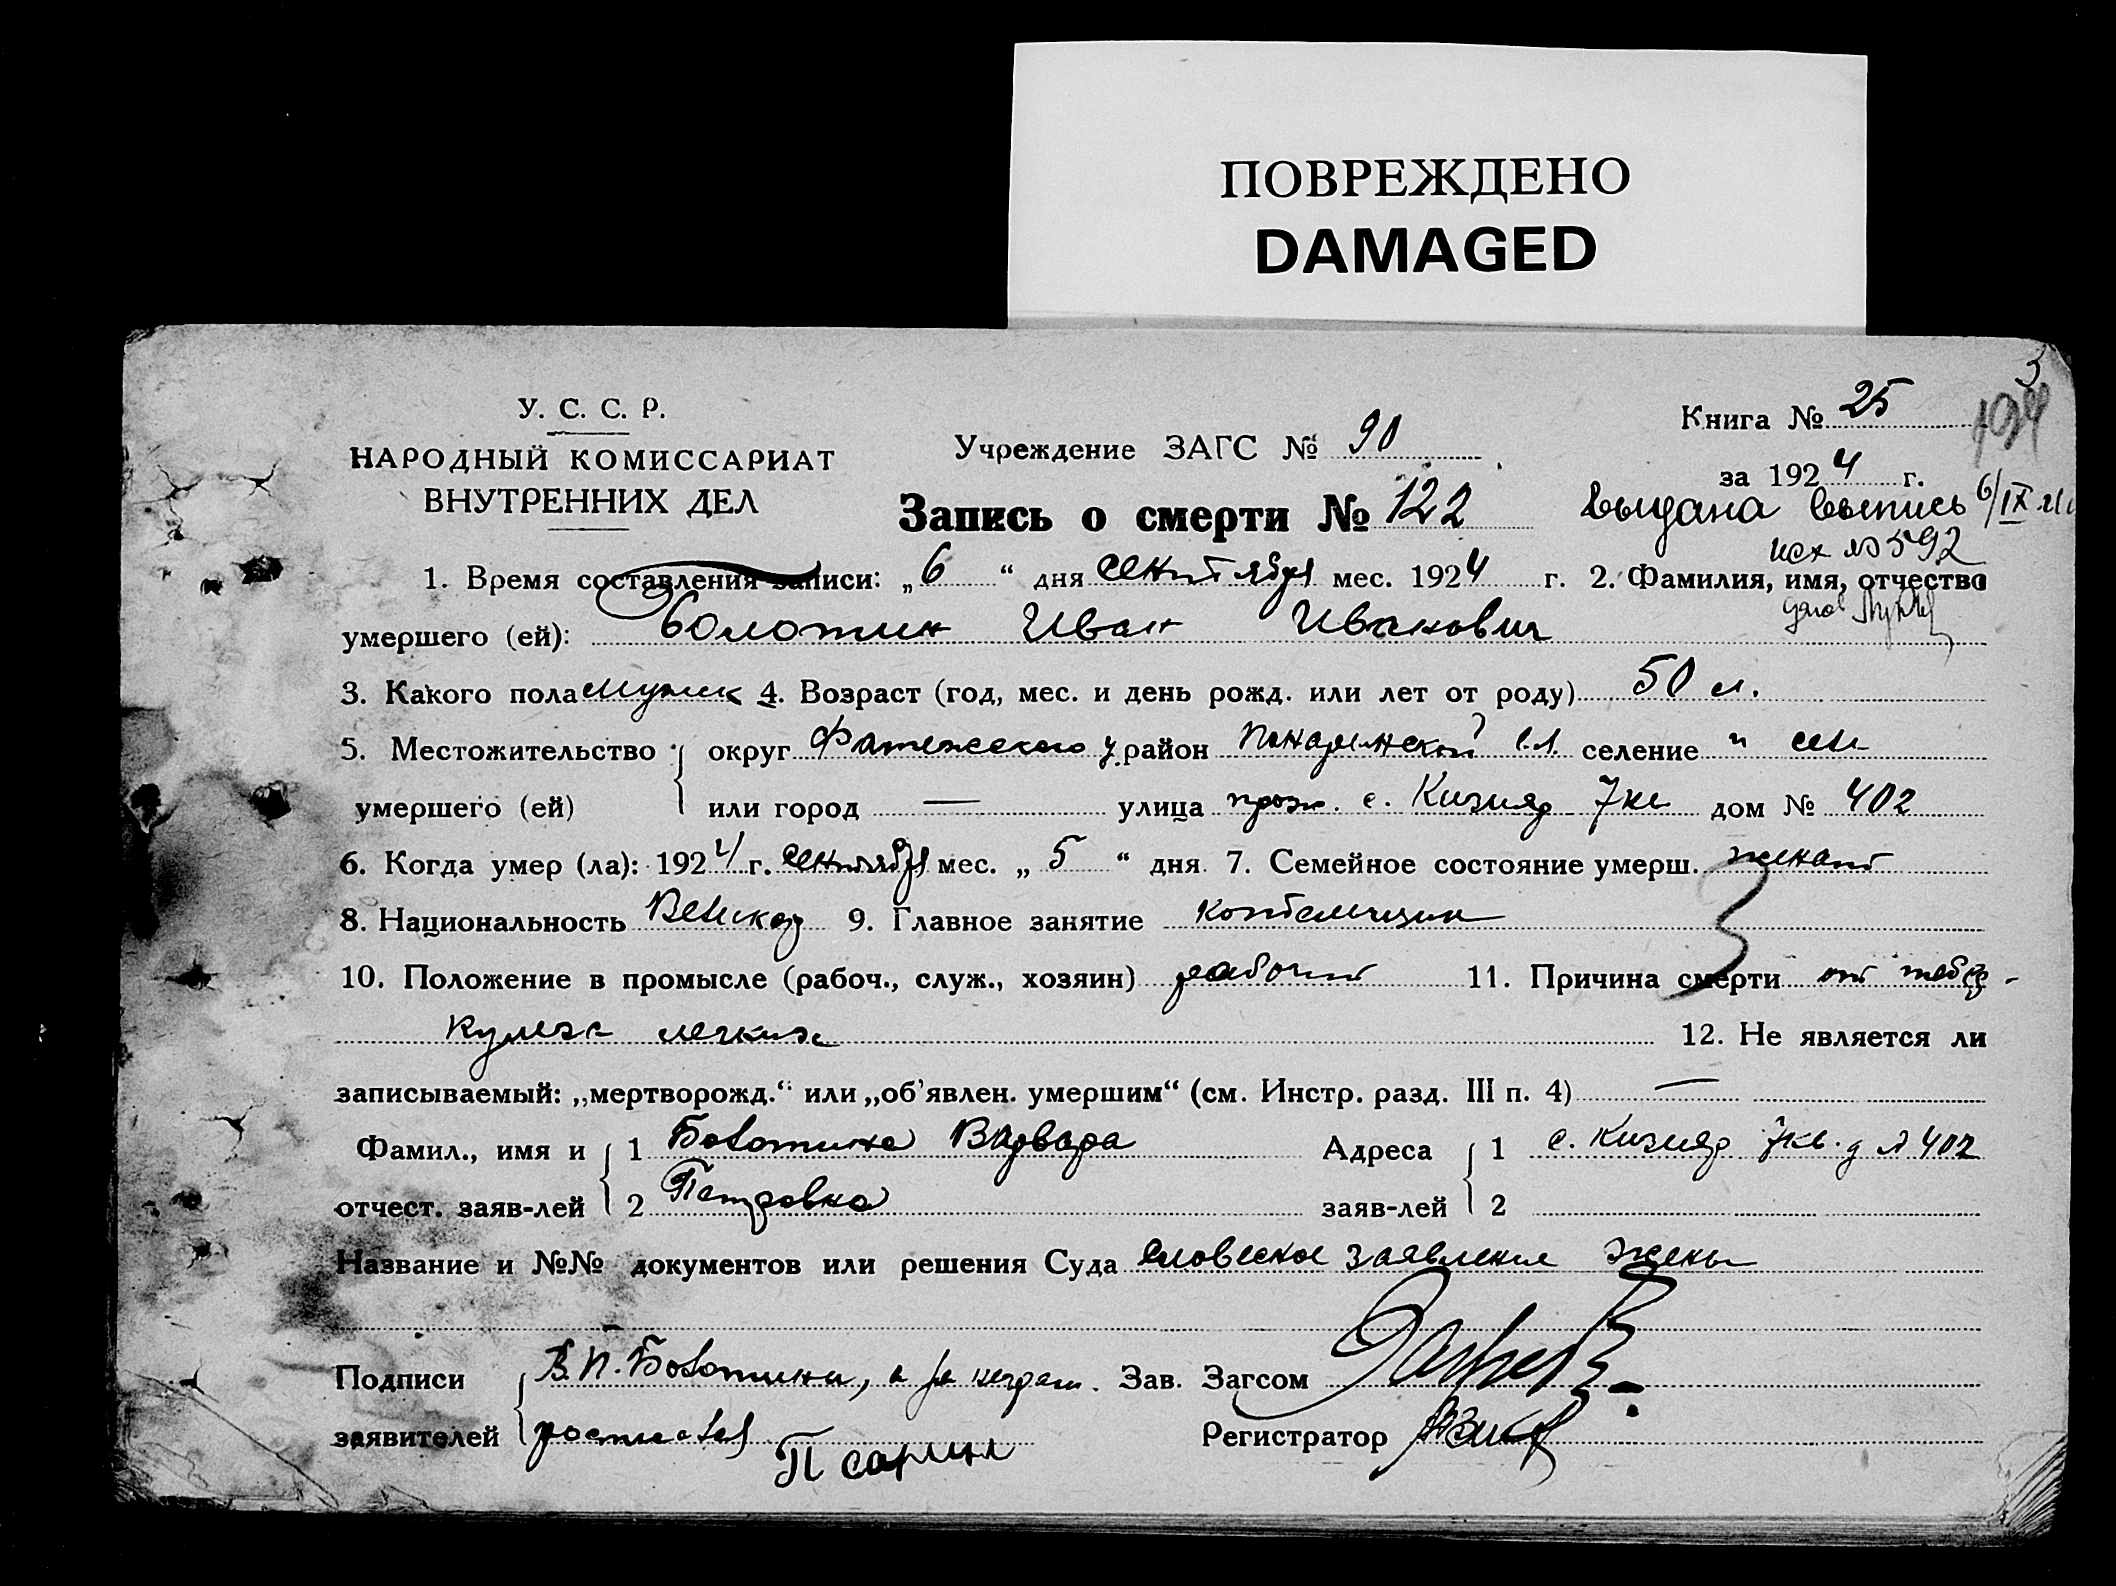 ПОВРЕЖДЕНО
DAMAGED
3
У. С. С. Р.
НАРОДНЫЙ КОМИССАРИАТ
ВНУТРЕННИХ ДЕЛ
Учреждение ЗАГС № 90
Книга № 25
за 1924 г.
Запись о смерти № 122
выдана выпись 6/IX
исх № 592
1. Время составления записи: „6“ дня сентября мес. 1924 г. 2. Фамилия, имя, отчество
умершего (ей): Болотин Иван Иванович
3. Какого пола мужск 4. Возраст (год, мес. и день рожд. или лет от роду) 50 л.
5. Местожительство округ Фатежского у. район с.с. селение " села
умершего (ей) или город — улица прож. с. Кизияр 7кв дом № 402
6. Когда умер (ла): 1924 г. сентября мес. „5“ дня 7. Семейное состояние умерш. женат
8. Национальность Великор 9. Главное занятие
10. Положение в промысле (рабоч., служ., хозяин) рабочий 11. Причина смерти от тубер-
кулеза легких 12. Не является ли
записываемый: „мертворожд.“ или „об'явлен. умершим“ (см. Инстр. разд. III п. 4) —
Фамил., имя и 1 Болотина Варвара Адреса 1 с. Кизияр 7кв. д № 402
отчест. заяв-лей 2 Петровна заяв-лей 2
Название и №№ документов или решения Суда словесное заявление жены
Подписи В.П. Болотина, а за неграм. Зав. Загсом
заявителей расписался Регистратор